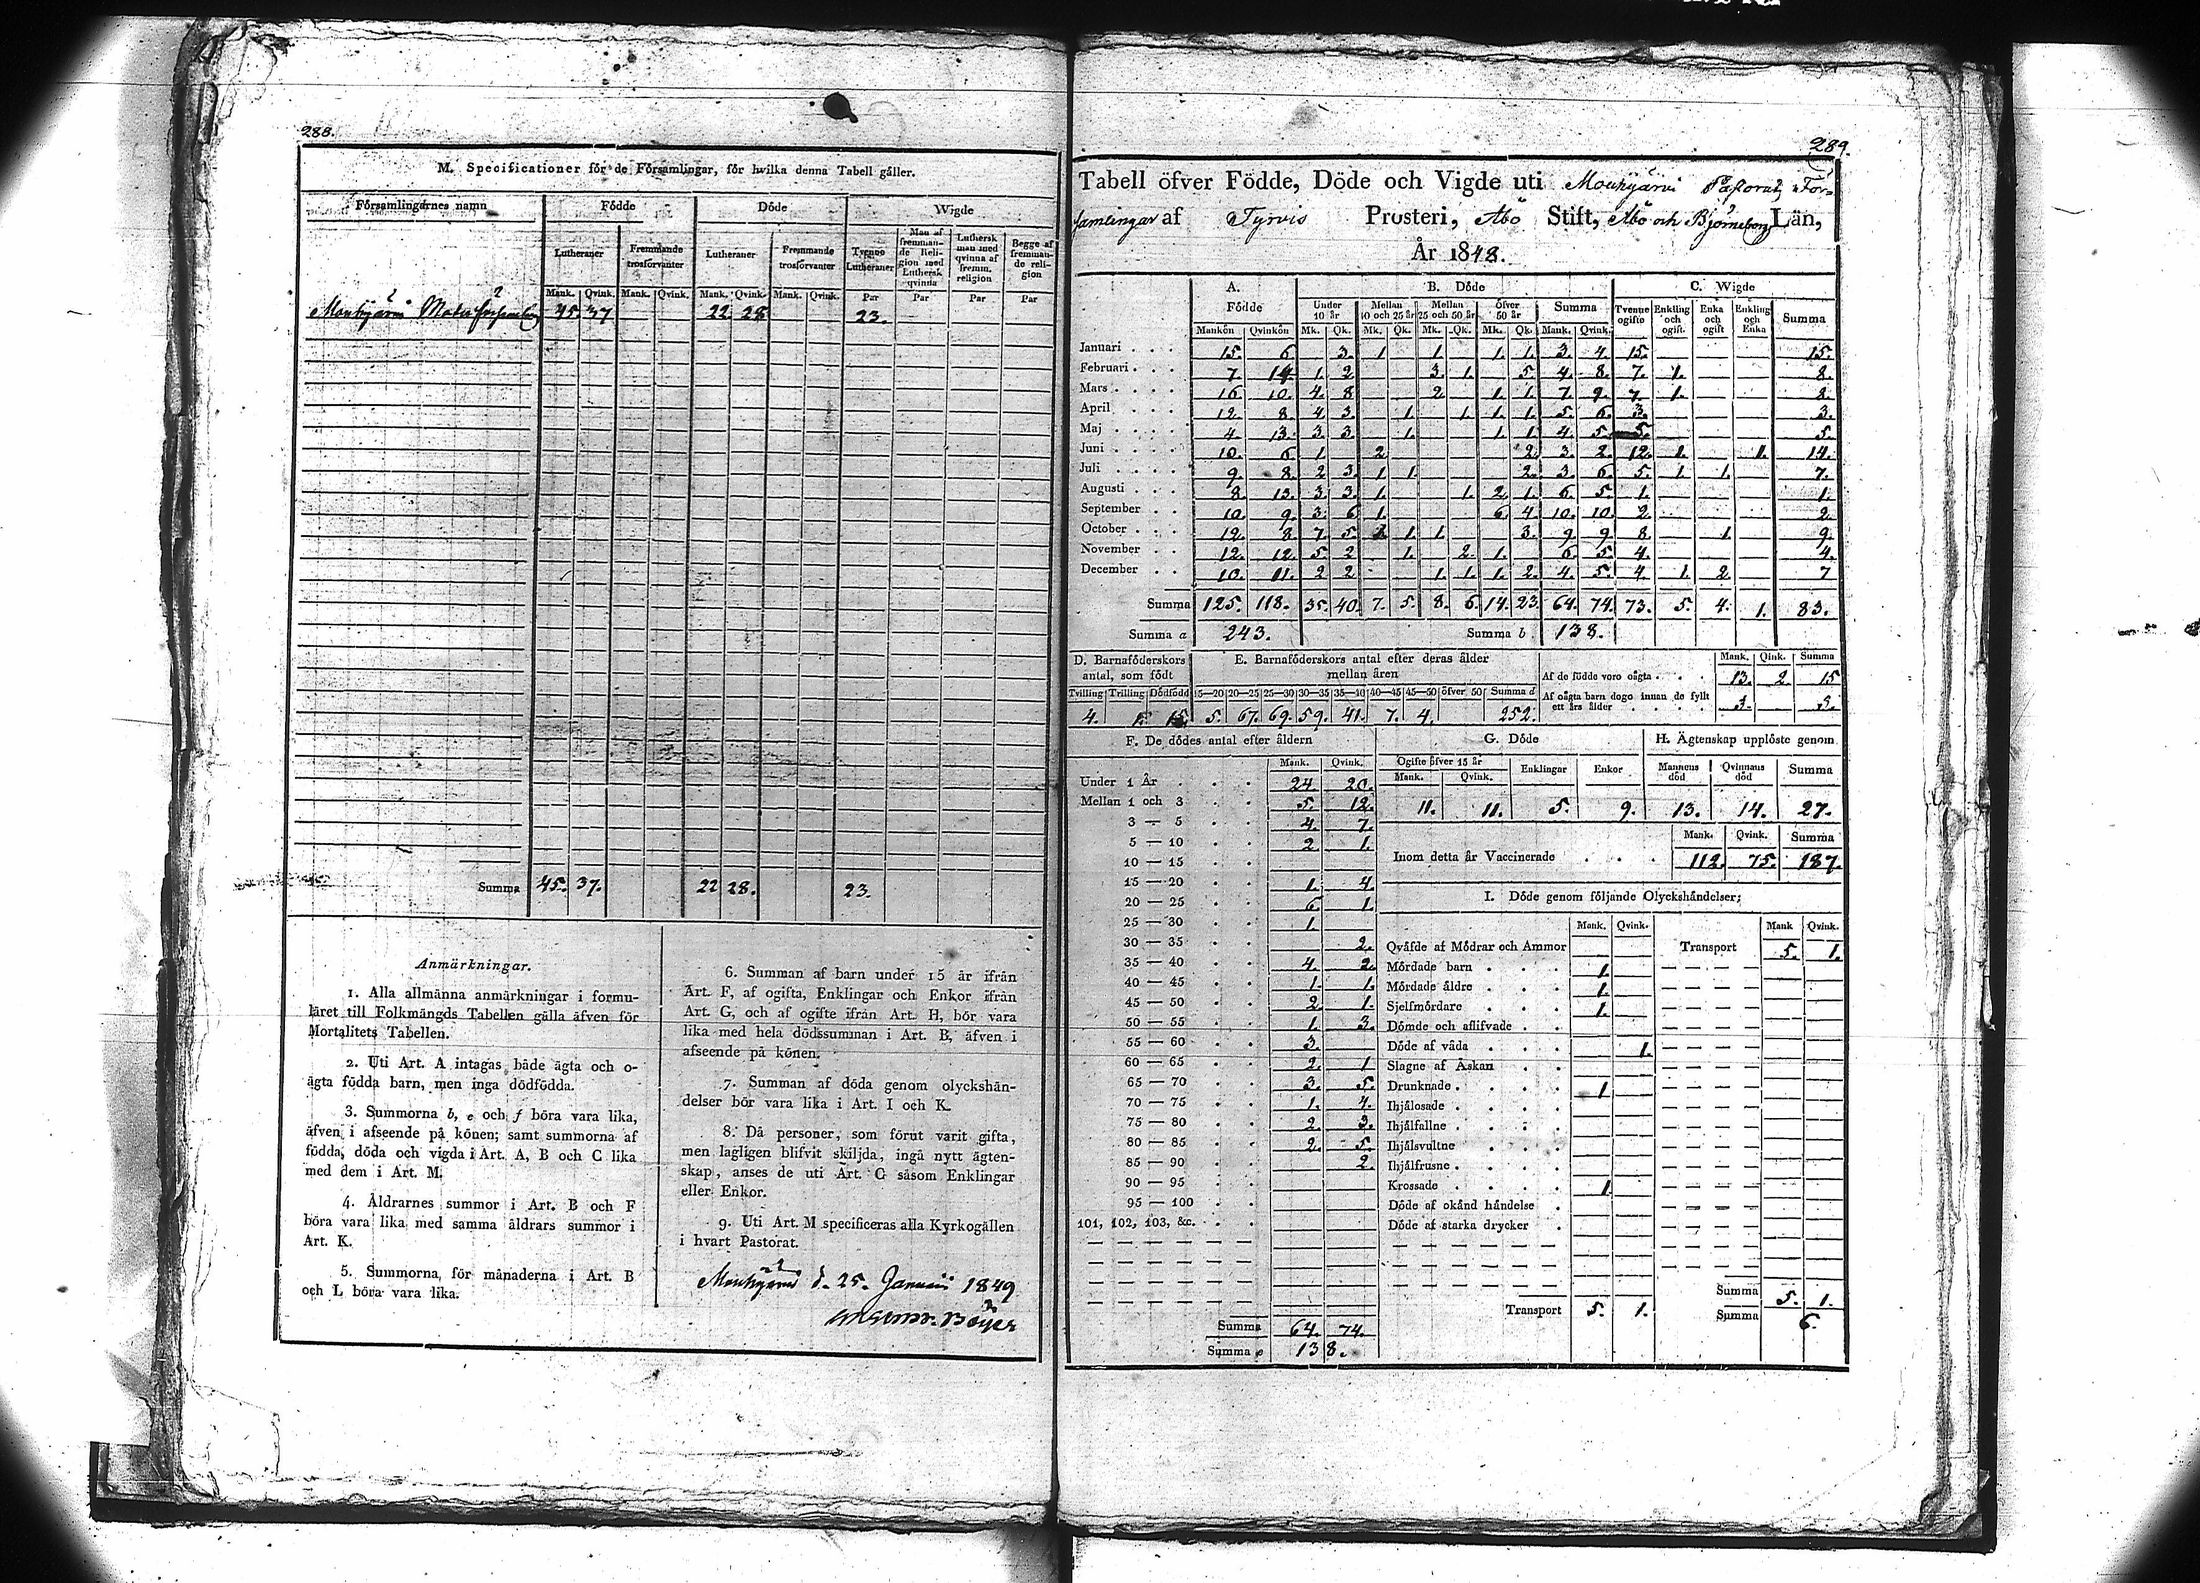 288.
M. Specificationer för de Församlingar, för hvilka denna Tabell gäller.
Församlingarnes namn Födde Döde Wigde
Lutheraner Fremmande trosförvanter Lutheraner Fremmande trosförvanter Tvenne Lutheraner Man af fremmande Religion med Luthersk qvinna Luthersk man med qvinna af fremm. religion Begge af fremmande religion
Mank. Qvink. Mank. Qvink. Mank. Qvink. Mank. Qvink. Par Par Par Par
Mouhijärvi Moder 45. 37 22. 28 23.
Summa 45. 37. 22 28. 23.
Anmärkningar.
1. Alla allmänna anmärkningar i formu-
läret till Folkmängds Tabellen gälla äfven för
Mortalitets Tabellen.
2. Uti Art. A intagas både ägta och o-
ägta födda barn, men inga dödfödda.
3. Summorna b, e och f böra vara lika,
äfven i afseende på könen; samt summorna af
födda, döda och vigda i Art. A, B och C lika
med dem i Art. M.
4. Åldrarnes summor i Art. B och F
böra vara lika med samma åldrars summor i
Art. K.
5. Summorna för månaderna i Art. B
och L böra vara lika.
6. Summan af barn under 15 år ifrån
Art. F, af ogifta, Enklingar och Enkor ifrån
Art. G, och af ogifte ifrån Art. H, bör vara
lika med hela dödssumman i Art. B, äfven i
afseende på könen.
7. Summan af döda genom olyckshän-
delser bör vara lika i Art. I och K.
8. Då personer, som förut varit gifta,
men lagligen blifvit skiljda, ingå nytt ägten-
skap, anses de uti Art. G såsom Enklingar
eller Enkor.
9. Uti Art. M specificeras alla Kyrkogällen
i hvart Pastorat.
Mouhijärvi d. 25. Januari 1849
289.
Tabell öfver Födde, Döde och Vigde uti Mouhijärvi Pastorat, För-
samlingar af Tyrvis Prosteri, Åbo Stift, Åbo och Björneborg Län,
År 1848.
A. Födde B. Döde C. Wigde
Under 10 år Mellan 10 och 25 år Mellan 25 och 50 år öfver 50 år Summa Tvenne ogifte Enkling och ogift. Enka och ogift Enkling och Enka Summa
Mankön Qvinkön Mk. Qk. Mk. Qk. Mk. Qk. Mk. Qk. Mank. Qvink.
Januari 15. 6 3. 1 1. 1. 1. 3. 4. 15. 15.
Februari 7. 14. 1. 2 3. 1. 5. 4. 8. 7. 1. 8.
Mars 16 10. 4. 8 2 1. 1. 7 9. 7. 1. 8.
April 12. 8. 4 3. 1. 1. 1. 1. 5. 6. 3. 3.
Maj 4. 13. 3. 3. 1. 1. 1. 4. 5. 5. 5.
Juni 10. 6 1. 2 2. 3. 2. 12. 1. 1. 14.
Juli 9. 8. 2 3. 1 1. 2. 3. 6 5. 1. 1. 7.
Augusti 8 13. 3 3. 1. 1. 2. 1. 6. 5. 1. 1.
September 10. 9. 3. 6 1. 6. 4 10. 10. 2. 2.
October 12. 8 7. 5. 1. 1. 3. 9 9 8. 1. 9.
November 12. 12. 5. 2 1. 2. 1. 6. 5. 4. 4.
December 10. 11. 2 2 1. 1. 1. 2. 4. 5. 4. 1. 2. 7
Summa 125. 118. 35. 40. 7. 5. 8. 6. 14. 23. 64. 74. 73. 5. 4. 1. 83.
Summa a 243. Summa b 138.
D. Barnaföderskors antal, som födt
Tvilling Trilling Dödfödd
4. 15.
E. Barnaföderskors antal efter deras ålder mellan åren
15—20 20—25 25—30 30—35 35—40 40—45 45—50 öfver 50 Summa d
5. 67. 69. 59. 41. 7. 4. 252.
Mank. Qink. Summa
Af de födde voro oägta 13. 2. 15
Af oägta barn dogo innan de fyllt ett års ålder 3. 3.
F. De dödes antal efter åldern
Mank. Qvink.
Under 1 År 24 20.
Mellan 1 och 3 5. 12.
3 — 5 4. 7.
5 — 10 2 1.
10 — 15
15 — 20 1. 4.
20 — 25 6. 1.
25 — 30 1.
30 — 35 2.
35 — 40 4. 2.
40 — 45 1. 1.
45 — 50 2. 1.
50 — 55 1. 3.
55 — 60 3.
60 — 65 2. 1
65 — 70 3. 5.
70 — 75 1. 4.
75 — 80 2. 3.
80 — 85 2. 5.
85 — 90 2.
90 — 95
95 — 100
101, 102, 103, &c.
Summa 64. 74.
Summa e 138.
G. Döde
Ogifte öfver 15 år Enklingar Enkor
Mank. Qvink.
11. 11. 5. 9.
H. Ägtenskap upplöste genom
Mannens död Qvinnans död Summa
13. 14. 27.
Mank. Qvink. Summa
Inom detta år Vaccinerade 112. 75. 187.
I. Döde genom följande Olyckshändelser;
Mank. Qvink. Mank Qvink.
Qväfde af Mödrar och Ammor Transport 5. 1.
Mördade barn 1.
Mördade äldre 1.
Sjelfmördare 1.
Dömde och aflifvade
Döde af våda 1.
Slagne af Åskan
Drunknade 1
Ihjälosade
Ihjälfallne
Ihjälsvultne
Ihjälfrusne
Krossade 1
Döde af okänd händelse
Döde af starka drycker
Transport 5. 1.
Summa 5. 1.
Summa 6.